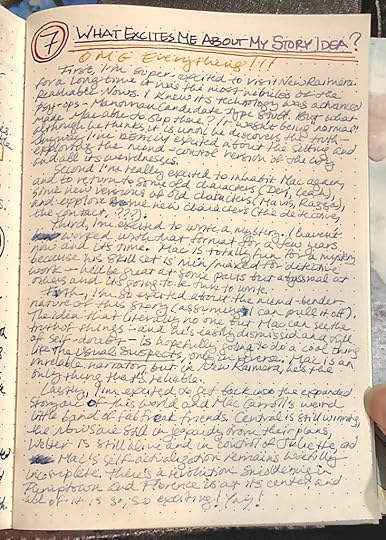 7 WHAT EXCITES ME ABOUT MY STORY IDEA?
OMG Everything!!!
First, I'm super-excited to visit New Raimera.
For a long time it was the most nebulous of the
Nows. I knew its technology was advanced
psy-ops - Manchurian Candidate type stuff. But what
made Mac able to slip there? It wasn't being "normal"
although he thinks it is until he discovers the truth.
Anyway, I'm really excited about the setting and
exploring the mind-control version of the city
and all its weirdnesses.
Second I'm really excited to inhabit Mac again,
and to return to some old characters (Dev, Leah),
some new versions of old characters (Mavis,
and explore some new characters (the detective,
the contact, ???).
Third, I'm excited to write a mystery. I haven't
worked in that format for a few years
now and its time. Mac is totally fun for a mystery
because his skill set is nin- maxed for detective
work - he'll be great at some parts but abysmal at
others and its going to be fun to write.
Forth, I'm so excited about the mind-bender
nature of this story (assuming I can pull it off).
The idea that literally no one but Mac can see the
truth of things - and he's easily dismissed and full
of self-doubt - is hopefully going to do a cool thing
like The Usual Suspects, only in reverse. Mac is an
unreliable narrator, but in New Raimera, he's the
only thing that's reliable.
Lastly, I'm excited to get back into the expanded
storyline of his world and Mac Carroll's weird
little band of friends. Central is still winning,
the Nows are still in jeopardy from their plans,
Weber is still alive and in control of Juliette, and
Mac's self-actualization remains woefully
incomplete. There's a revolution smoldering in
and Florence is at its center, and
all of it is so, so exciting! Yay!